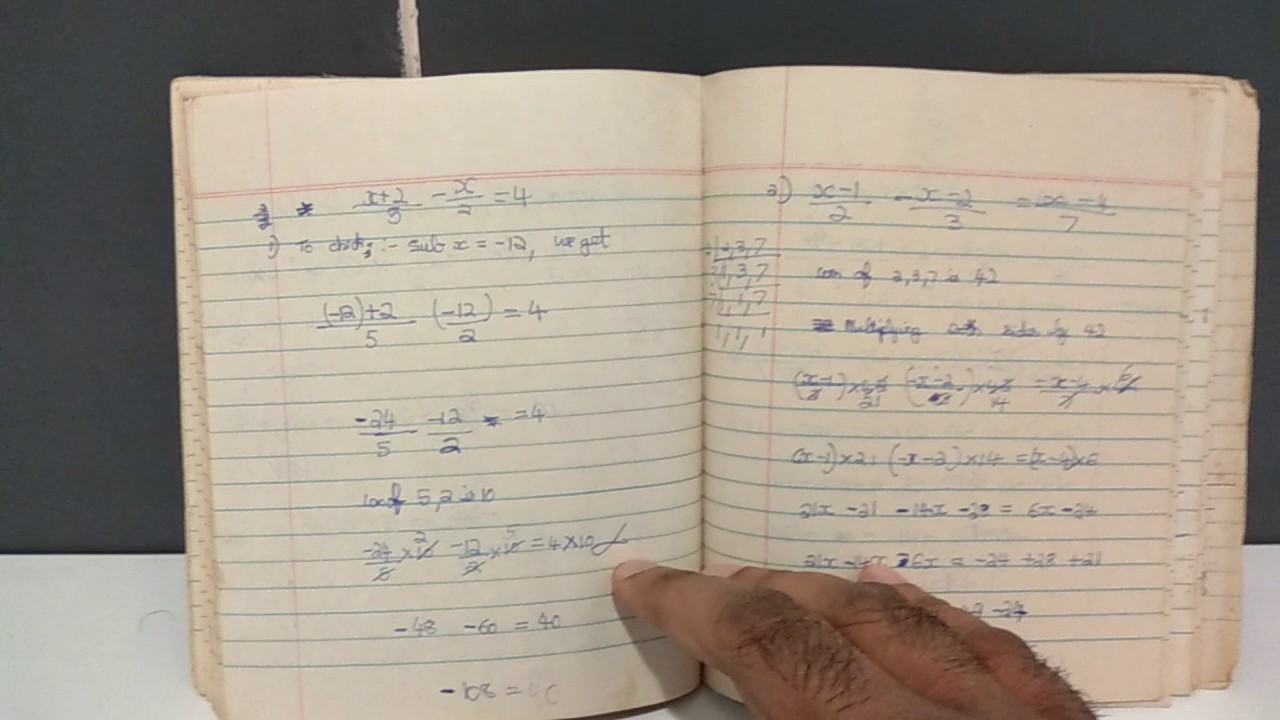 x+2/5 - x/2 = 4
1) To check :- sub x = -12, we get
(-12)+2/5 (-12/2) = 4
-24/5 -12/2 = 4
lcm of 5,2 is 10
-24/5 × 10 2 -12/2 × 10 5 = 4×10
-48 -60 = 40
-108 = 40
2) x-1/2 - x-2/3 = x-4/7
2,3,7
1,3,7
1,1,7
1,1,1
lcm of 2,3,7 is 42
Multiplying both sides by 42
(x-1/2)×42 21 (-x-2/3)×42 14 = x-4/7 × 6
(x-1)×21 (-x-2)×14 = (x-4)×6
21x -21 -14x -28 = 6x -24
21x -14x 6x = -24 +28 +21
-24